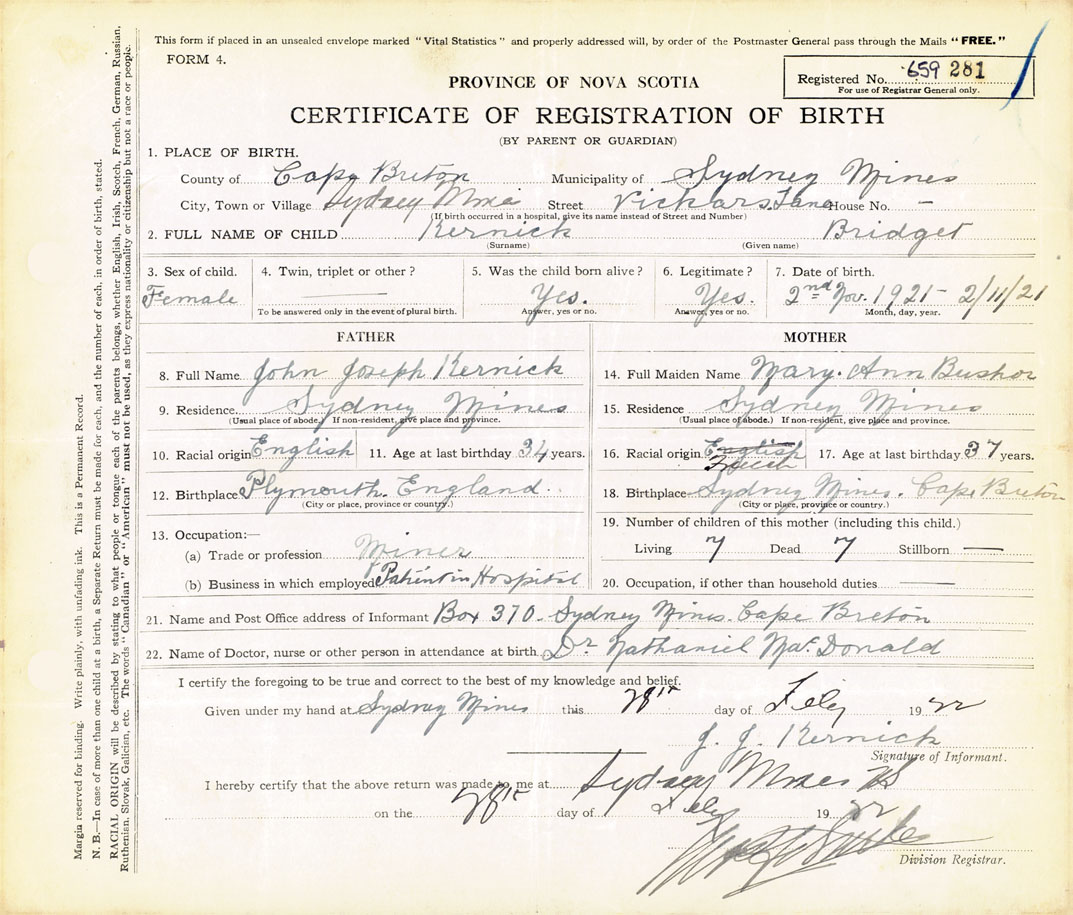 This form if placed in an unsealed envelope marked "Vital Statistics" and properly addressed will, by order of the Postmaster General pass through the Mails "FREE."
FORM 4.
Registered No. 659 281
For use of Registrar General only.
PROVINCE OF NOVA SCOTIA
CERTIFICATE OF REGISTRATION OF BIRTH
(BY PARENT OR GUARDIAN)
1. PLACE OF BIRTH.
County of Cape Breton Municipality of Sydney Mines
City, Town or Village Sydney Mines Street Vickars Lane House No. -
(If birth occurred in a hospital, give its name instead of Street and Number)
2. FULL NAME OF CHILD Kernick Bridget
(Surname) (Given name)
3. Sex of child. 4. Twin, triplet or other? 5. Was the child born alive? 6. Legitimate? 7. Date of birth.
Female — Yes. Yes. 2nd Nov. 1921 - 2/11/21
To be answered only in the event of plural birth. Answer, yes or no. Answer, yes or no. Month, day, year.
FATHER
8. Full Name John Joseph Kernick
9. Residence Sydney Mines
(Usual place of abode.) If non-resident, give place and province.
10. Racial origin English 11. Age at last birthday 34 years.
12. Birthplace Plymouth. England
(City or place, province or country.)
13. Occupation:—
(a) Trade or profession Miner
(b) Business in which employed Patient in Hospital
MOTHER
14. Full Maiden Name Mary Ann
15. Residence Sydney Mines
(Usual place of abode.) If non-resident, give place and province.
16. Racial origin English French 17. Age at last birthday 37 years.
18. Birthplace Sydney Mines. Cape Breton
(City or place, province or country.)
19. Number of children of this mother (including this child.)
Living 7 Dead 7 Stillborn —
20. Occupation, if other than household duties —
21. Name and Post Office address of Informant Box 370. Sydney Mines. Cape Breton
22. Name of Doctor, nurse or other person in attendance at birth Dr Nathaniel McDonald
I certify the foregoing to be true and correct to the best of my knowledge and belief.
Given under my hand at Sydney Mines this 28th day of Feby 1922
J. J. Kernick
Signature of Informant.
I hereby certify that the above return was made to me at Sydney Mines NS
on the 28th day of Feby 1922
Division Registrar.
Margin reserved for binding. Write plainly, with unfading ink. This is a Permanent Record.
N. B.—In case of more than one child at a birth, a Separate Return must be made for each, and the number of each, in order of birth, stated.
RACIAL ORIGIN will be described by stating to what people or tongue each of the parents belongs, whether English, Irish, Scotch, French, German, Russian,
Ruthenian, Slovak, Galician, etc. The words "Canadian" or "American" must not be used, as they express nationality or citizenship but not a race or people.